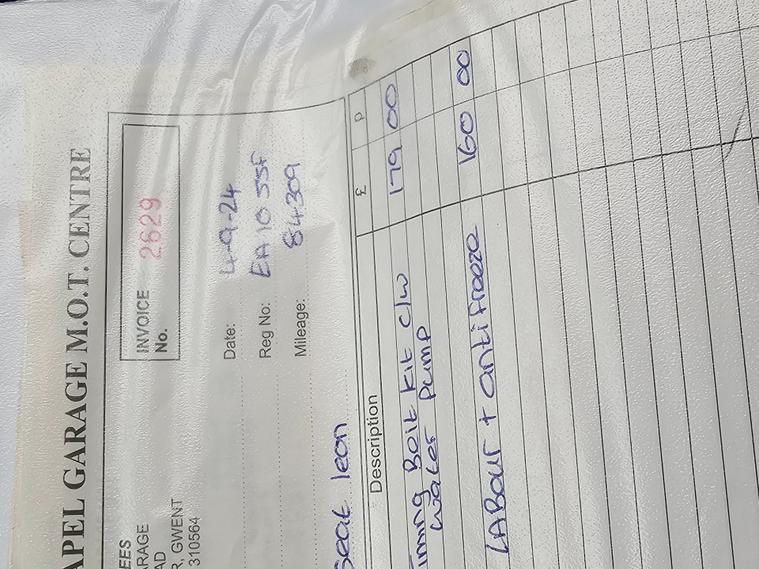 APEL GARAGE M.O.T. CENTRE
EES
ARAGE
AD
R, GWENT
310564
INVOICE No. 2629
Date: 4-9-24
Reg No: EA10 SSF
Mileage: 84309
Seat leon
Description £ p
iming Belt Kit c/w 179 00
water pump
LABOUr + antifreeze 160 00